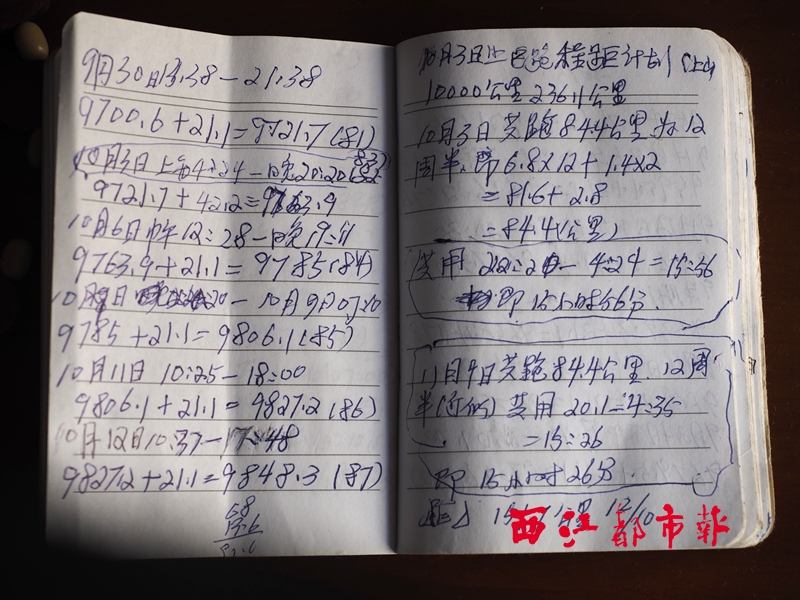 9月30日13.38-21.38
9700.6+21.1=9721.7(81)
10月3日上午4:24-晚20:20
9721.7+42.2=9763.9
10月6日中午12:28-晚19:11
9763.9+21.1=9785(84)
10月 日 -10月9日
9785+21.1=9806.1(85)
10月11日 10:25-18:00
9806.1+21.1=9827.2(86)
10月12日10.37-17:48
9827.2+21.1=9848.3(87)
10月3日止 路程距计划
10000公里236.1公里
10月3日共跑84.4公里.为12
周半,即6.8×12+1.4×2
=81.6+2.8
=84.4(公里)
共用 -4:24=15:56
即15小时56分.
11月9日共跑84.4公里.12周
半(近似)共用20.1-4:35
=15:26
即15小时26分.
公里 12/10
西江都市報